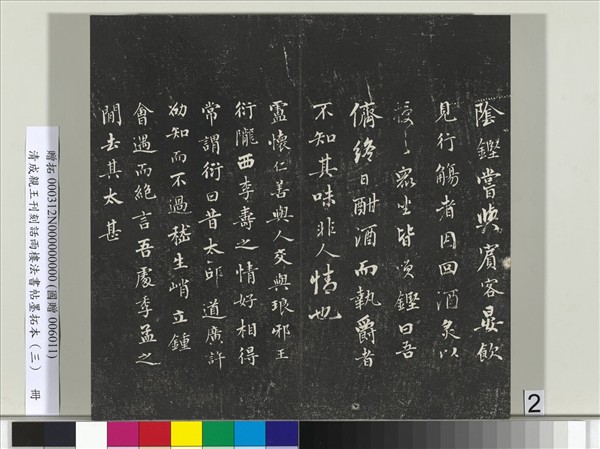 陰鏗嘗與賓客晏飲
見行觴者因回酒炙以
授之眾坐皆笑鏗曰吾
儕終日酣酒而執爵者
不知其味非人情也
盧懷仁善與人交與琅邪王
衍隴西李壽之情好相得
常謂衍曰昔太邱道廣許
劭知而不過嵇生峭立鍾
會過而絕言吾處季孟之
間去其太甚
贈拓 000312N000000000 (國贈 006011)
清成親王刊刻話雨樓法書帖墨拓本（三） 冊
2